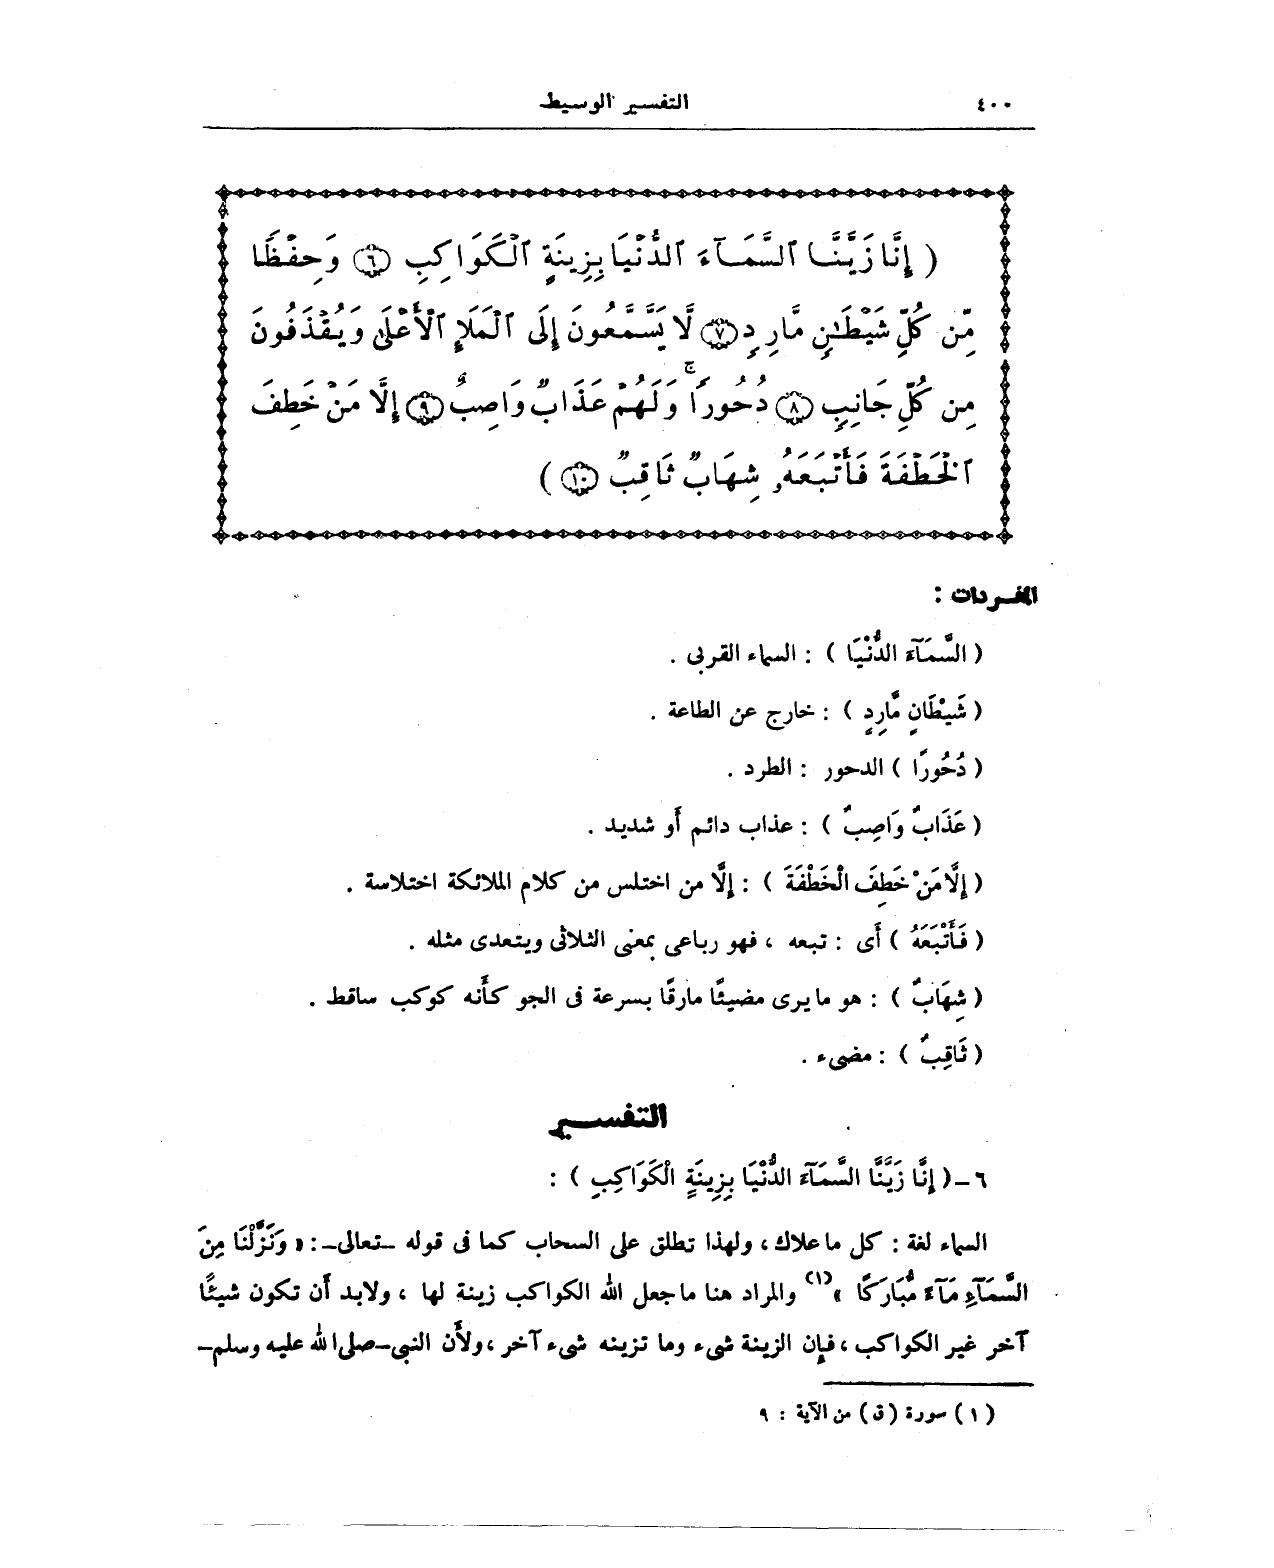 ٤٠٠
التفسير الوسيط
( إِنَّا زَيَّنَّا ٱلسَّمَآءَ ٱلدُّنْيَا بِزِينَةٍ ٱلْكَوَاكِبِ ۝٦ وَحِفْظًا
مِّن كُلِّ شَيْطَٰنٍ مَّارِدٍ ۝٧ لَّا يَسَّمَّعُونَ إِلَى ٱلْمَلَإِ ٱلْأَعْلَىٰ وَيُقْذَفُونَ
مِن كُلِّ جَانِبٍ ۝٨ دُحُورًا ۖ وَلَهُمْ عَذَابٌ وَاصِبٌ ۝٩ إِلَّا مَنْ خَطِفَ
ٱلْخَطْفَةَ فَأَتْبَعَهُۥ شِهَابٌ ثَاقِبٌ ۝١٠ )
المفردات :
( السَّمَآءَ الدُّنْيَا ) : السماء القربى .
( شَيْطَانٍ مَّارِدٍ ) : خارج عن الطاعة .
( دُحُورًا ) الدحور : الطرد .
( عَذَابٌ وَاصِبٌ ) : عذاب دائم أو شديد .
( إِلَّا مَنْ خَطِفَ الْخَطْفَةَ ) : إلَّا من اختلس من كلام الملائكة اختلاسة .
( فَأَتْبَعَهُ ) أى : تبعه ، فهو رباعى بمعنى الثلاثى ويتعدى مثله .
( شِهَابٌ ) : هو ما يرى مضيئًا مارقًا بسرعة فى الجو كأنه كوكب ساقط .
( ثَاقِبٌ ) : مضىء .
التفسير
٦ – ( إِنَّا زَيَّنَّا السَّمَآءَ الدُّنْيَا بِزِينَةٍ الْكَوَاكِبِ ) :
السماء لغة : كل ما علاك ، ولهذا تطلق على السحاب كما فى قوله –تعالى– : « وَنَزَّلْنَا مِنَ
السَّمَآءِ مَآءً مُّبَارَكًا »(١) والمراد هنا ما جعل الله الكواكب زينة لها ، ولابد أن تكون شيئًا
آخر غير الكواكب ، فإن الزينة شىء وما تزينه شىء آخر ، ولأن النبى–صلى الله عليه وسلم–
(١) سورة (ق) من الآية : ٩